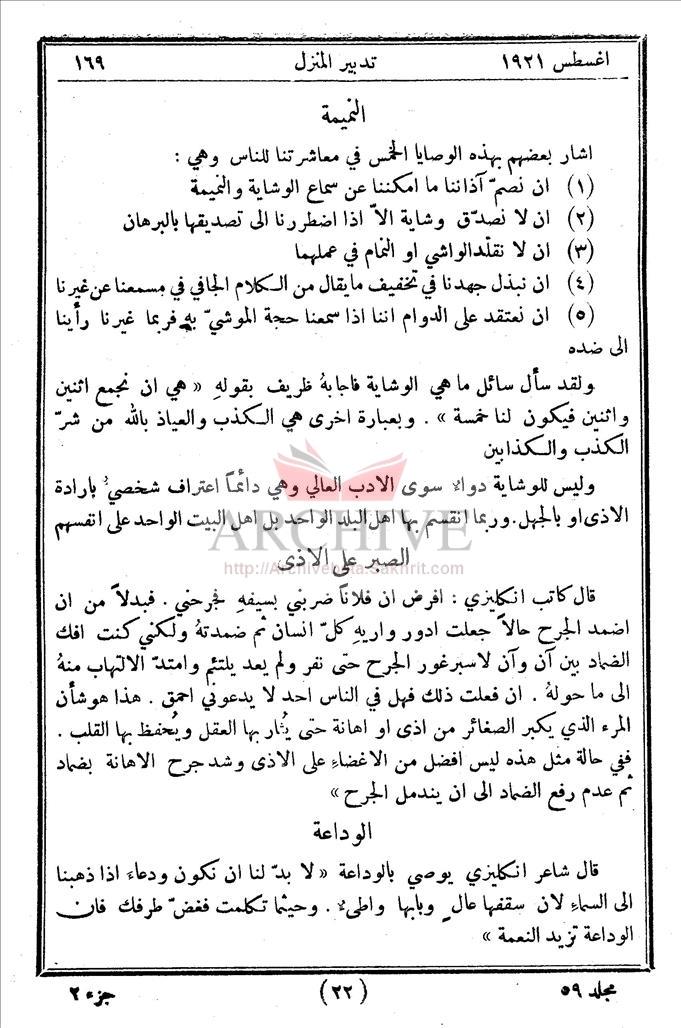 اغسطس ١٩٢١ تدبير المنزل ١٦٩
النميمة
اشار بعضهم بهذه الوصايا الخمس في معاشرتنا للناس وهي :
(١) ان نصمّ آذاننا ما امكننا عن سماع الوشاية والنميمة
(٢) ان لا نصدّق وشاية الاّ اذا اضطررنا الى تصديقها بالبرهان
(٣) ان لا نقلّد الواشي او النمام في عملهما
(٤) ان نبذل جهدنا في تخفيف ما يقال من الكلام الجافي في مسمعنا عن غيرنا
(٥) ان نعتقد على الدوام اننا اذا سمعنا حجة الموشيّ بهِ فربما غيرنا رأينا
الى ضده
ولقد سأل سائل ما هي الوشاية فاجابهُ ظريف بقولهِ « هي ان نجمع اثنين
واثنين فيكون لنا خمسة » . وبعبارة اخرى هي الكذب والعياذ بالله من شرّ
الكذب والكذابين
وليس للوشاية دواء سوى الادب العالي وهي دائماً اعتراف شخصيّ بارادة
الاذى او بالجهل. وربما انقسم بها اهل البلد الواحد بل اهل البيت الواحد على انفسهم
ARCHIVE
http://Archivebeta.Sakhrit.com
الصبر على الاذى
قال كاتب انكليزي : افرض ان فلاناً ضربني بسيفهِ فجرحني . فبدلاً من ان
اضمد الجرح حالاً جعلت ادور واريهِ كلّ انسان ثم ضمدتهُ ولكني كنت افك
الضماد بين آن وآن لاسبر غور الجرح حتى نفر ولم يعد يلتئم وامتدّ الالتهاب منهُ
الى ما حولهُ . ان فعلت ذلك فهل في الناس احد لا يدعوني احمق . هذا هو شأن
المرء الذي يكبر الصغائر من اذى او اهانة حتى يُثار بها العقل ويُحفظ بها القلب .
ففي حالة مثل هذه ليس افضل من الاغضاءِ على الاذى وشد جرح الاهانة بضماد
ثم عدم رفع الضماد الى ان يندمل الجرح »
الوداعة
قال شاعر انكليزي يوصي بالوداعة « لا بدّ لنا ان نكون ودعاء اذا ذهبنا
الى السماءِ لان سقفها عالٍ وبابها واطىء . وحيثما تكلمت فغضّ طرفك فان
الوداعة تزيد النعمة »
مجلد ٥٩ (٢٢) جزء ٢